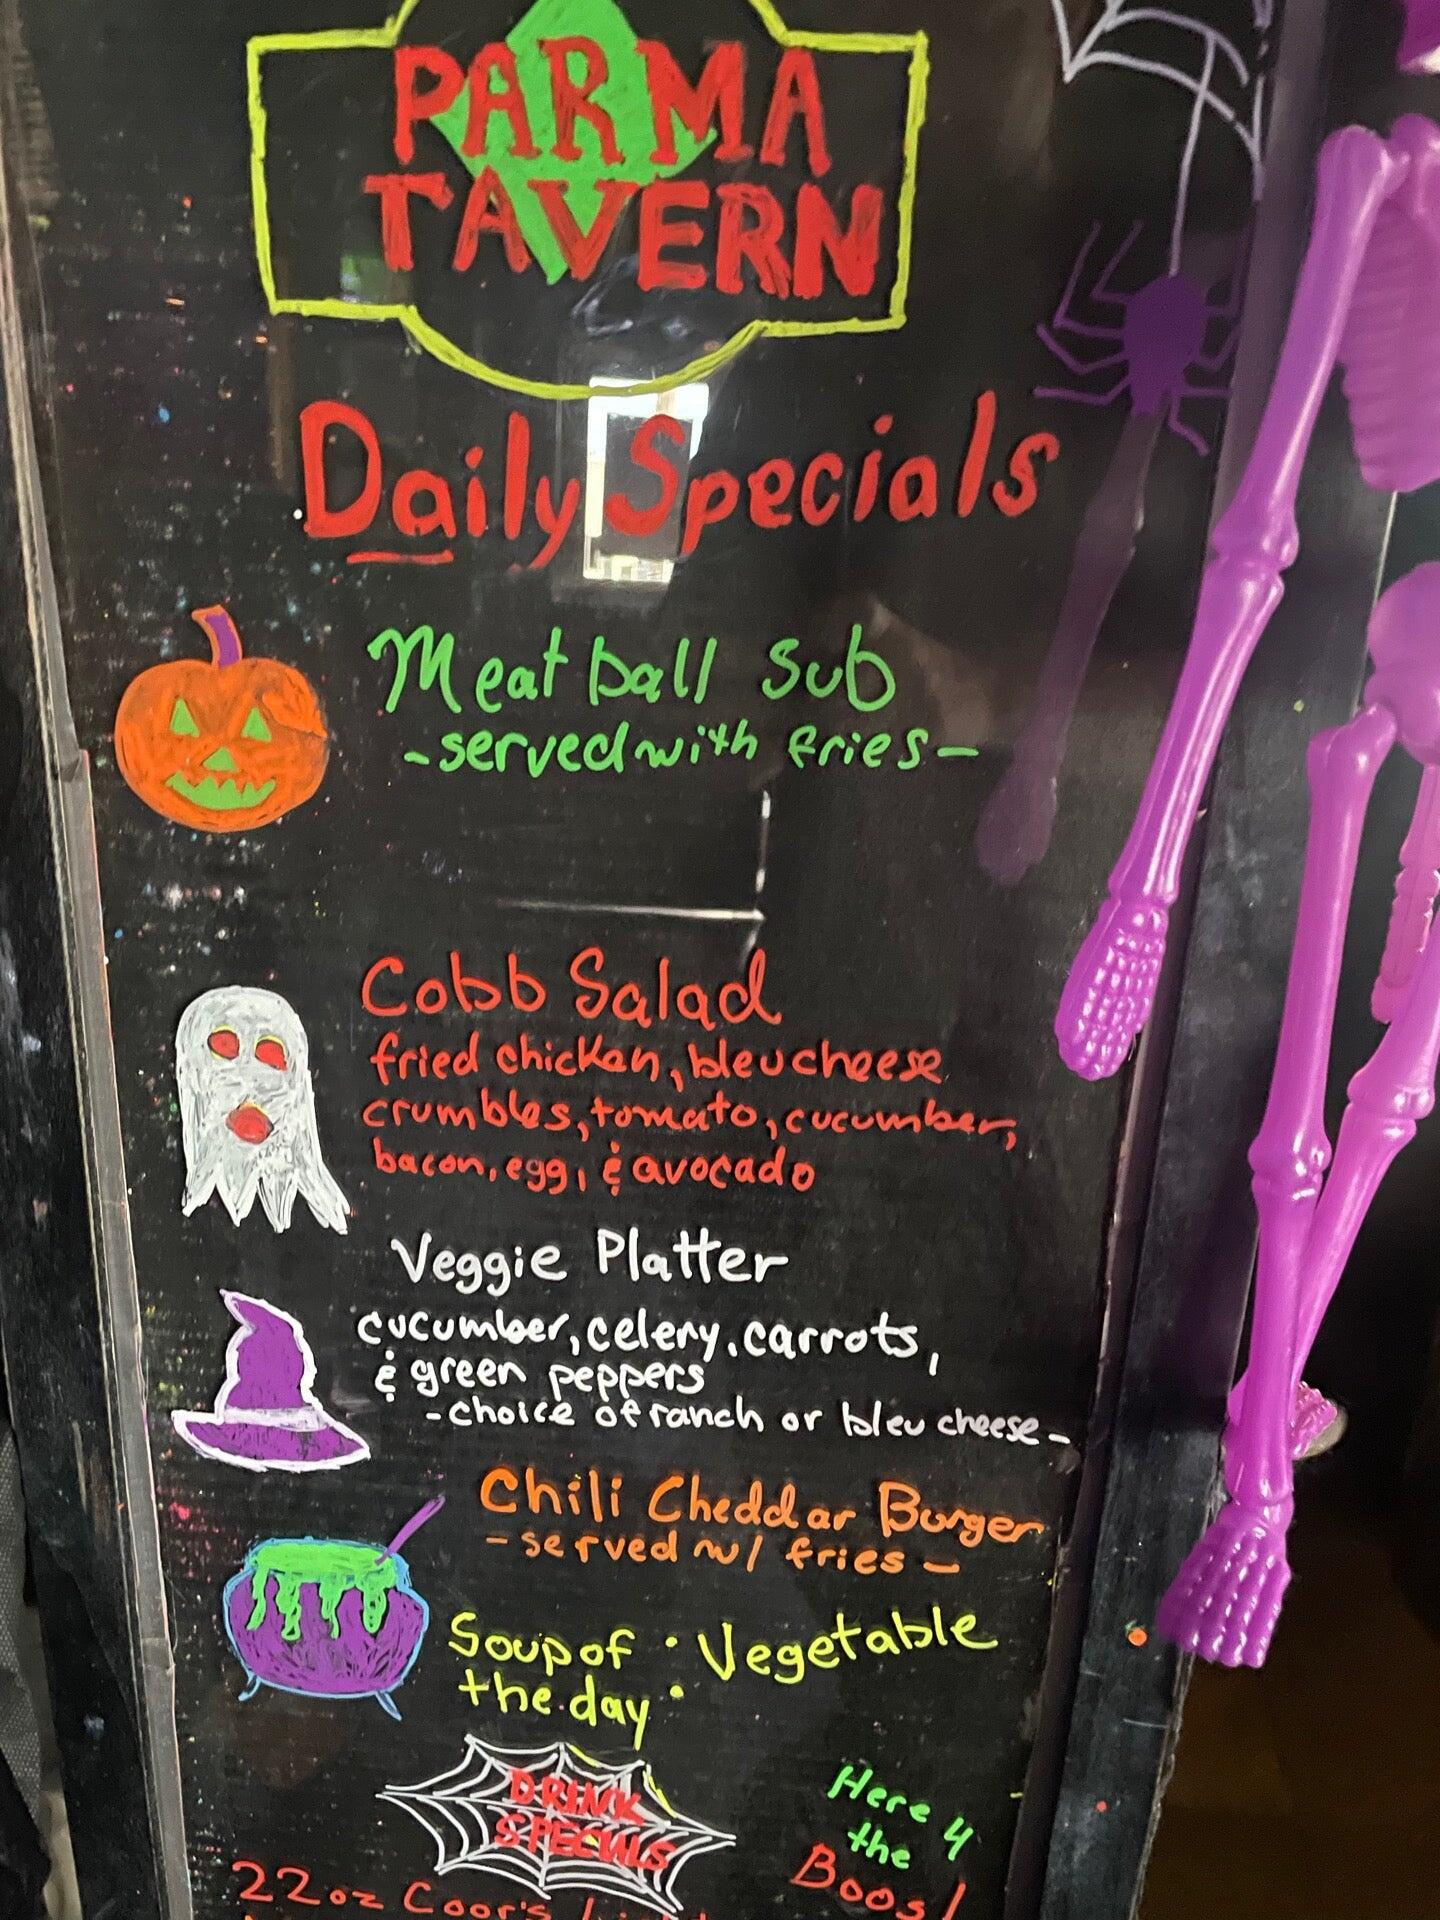 PARMA
TAVERN
Daily Specials
Meatball Sub
-served with fries-
Cobb Salad
fried chicken, bleu cheese
crumbles, tomato, cucumber,
bacon, egg, & avocado
Veggie Platter
cucumber, celery, carrots,
& green peppers
-choice of ranch or bleu cheese-
Chili Cheddar Burger
-served w/ fries-
Soup of : Vegetable
the day
DRINK
SPECIALS
Here 4
the
Boos!
22oz Coor's Light